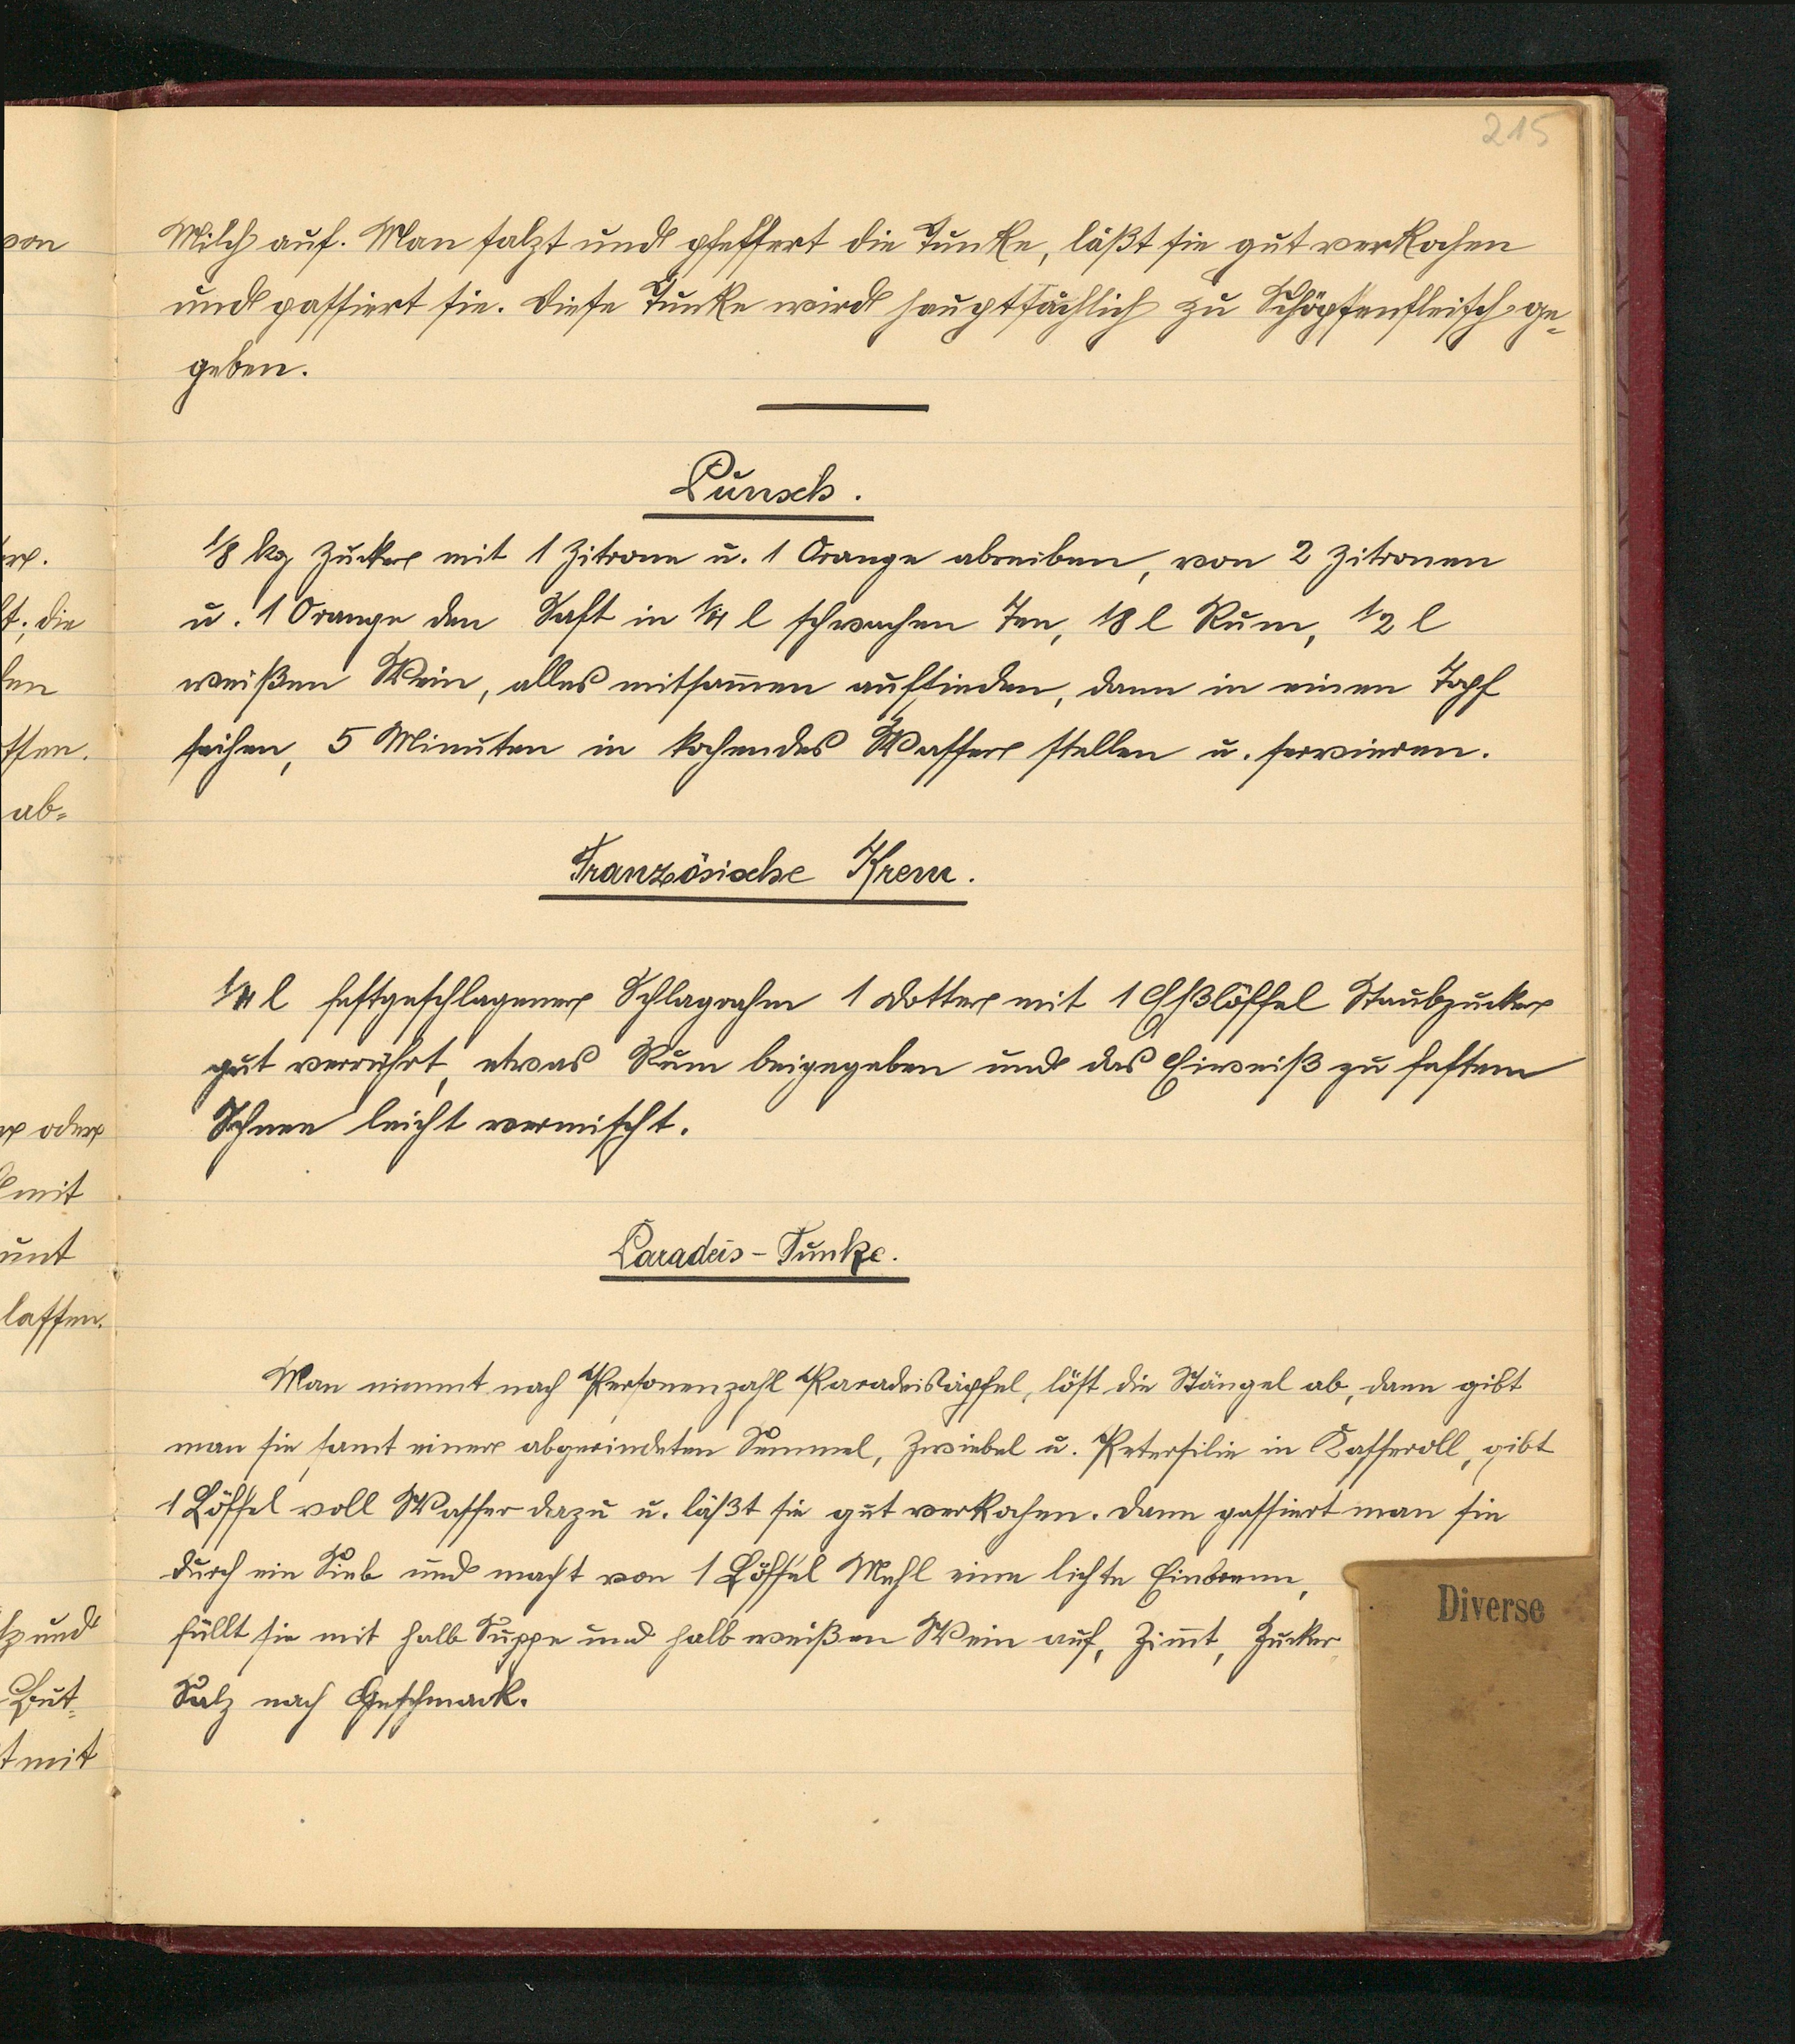 215
Milch auf. Man salzt und pfeffert die Tunke, läßt sie gut verkochen
und passiert sie. Diese Tunke wird hauptsächlich zu Schöpsenfleisch ge-
geben.
Punsch.
1/8 kg Zucker mit 1 Zitrone u. 1 Orange abreiben, von 2 Zitronen
u. 1 Orange den Saft in 1/4 l schwachen Tee, 1/8 l Rum, 1/2 l
weißen Wein, alles mitsam̅en aufsieden, dann in einen Topf
seihen, 5 Minuten in kochendes Wasser stellen u. servieren.
Französische Krem.
1/4 l festgeschlagener Schlagrahm 1 Dotter mit 1 Eßlöffel Staubzucker
gut verrührt, etwas Rum beigegeben und das Eiweiß zu festem
Schnee leicht vermischt.
Paradeis-Tunke.
Man nimmt nach Personenzahl Paradeisäpfel, löst die Stängel ab, dann gibt
man sie samt einer abgerindeten Semmel, Zwiebel u. Petersilie in Kasseroll, gibt
1 Löffel voll Wasser dazu u. läßt sie gut verkochen. Dann passiert man sie
durch ein Sieb und macht von 1 Löffel Mehl eine lichte Einbrenn,
füllt sie mit halb Suppe und halb weißen Wein auf, Zim̅t, Zucker
Salz nach Geschmack.
Diverse
von
die
ab-
oder
mit
lassen.
und
But-
mit